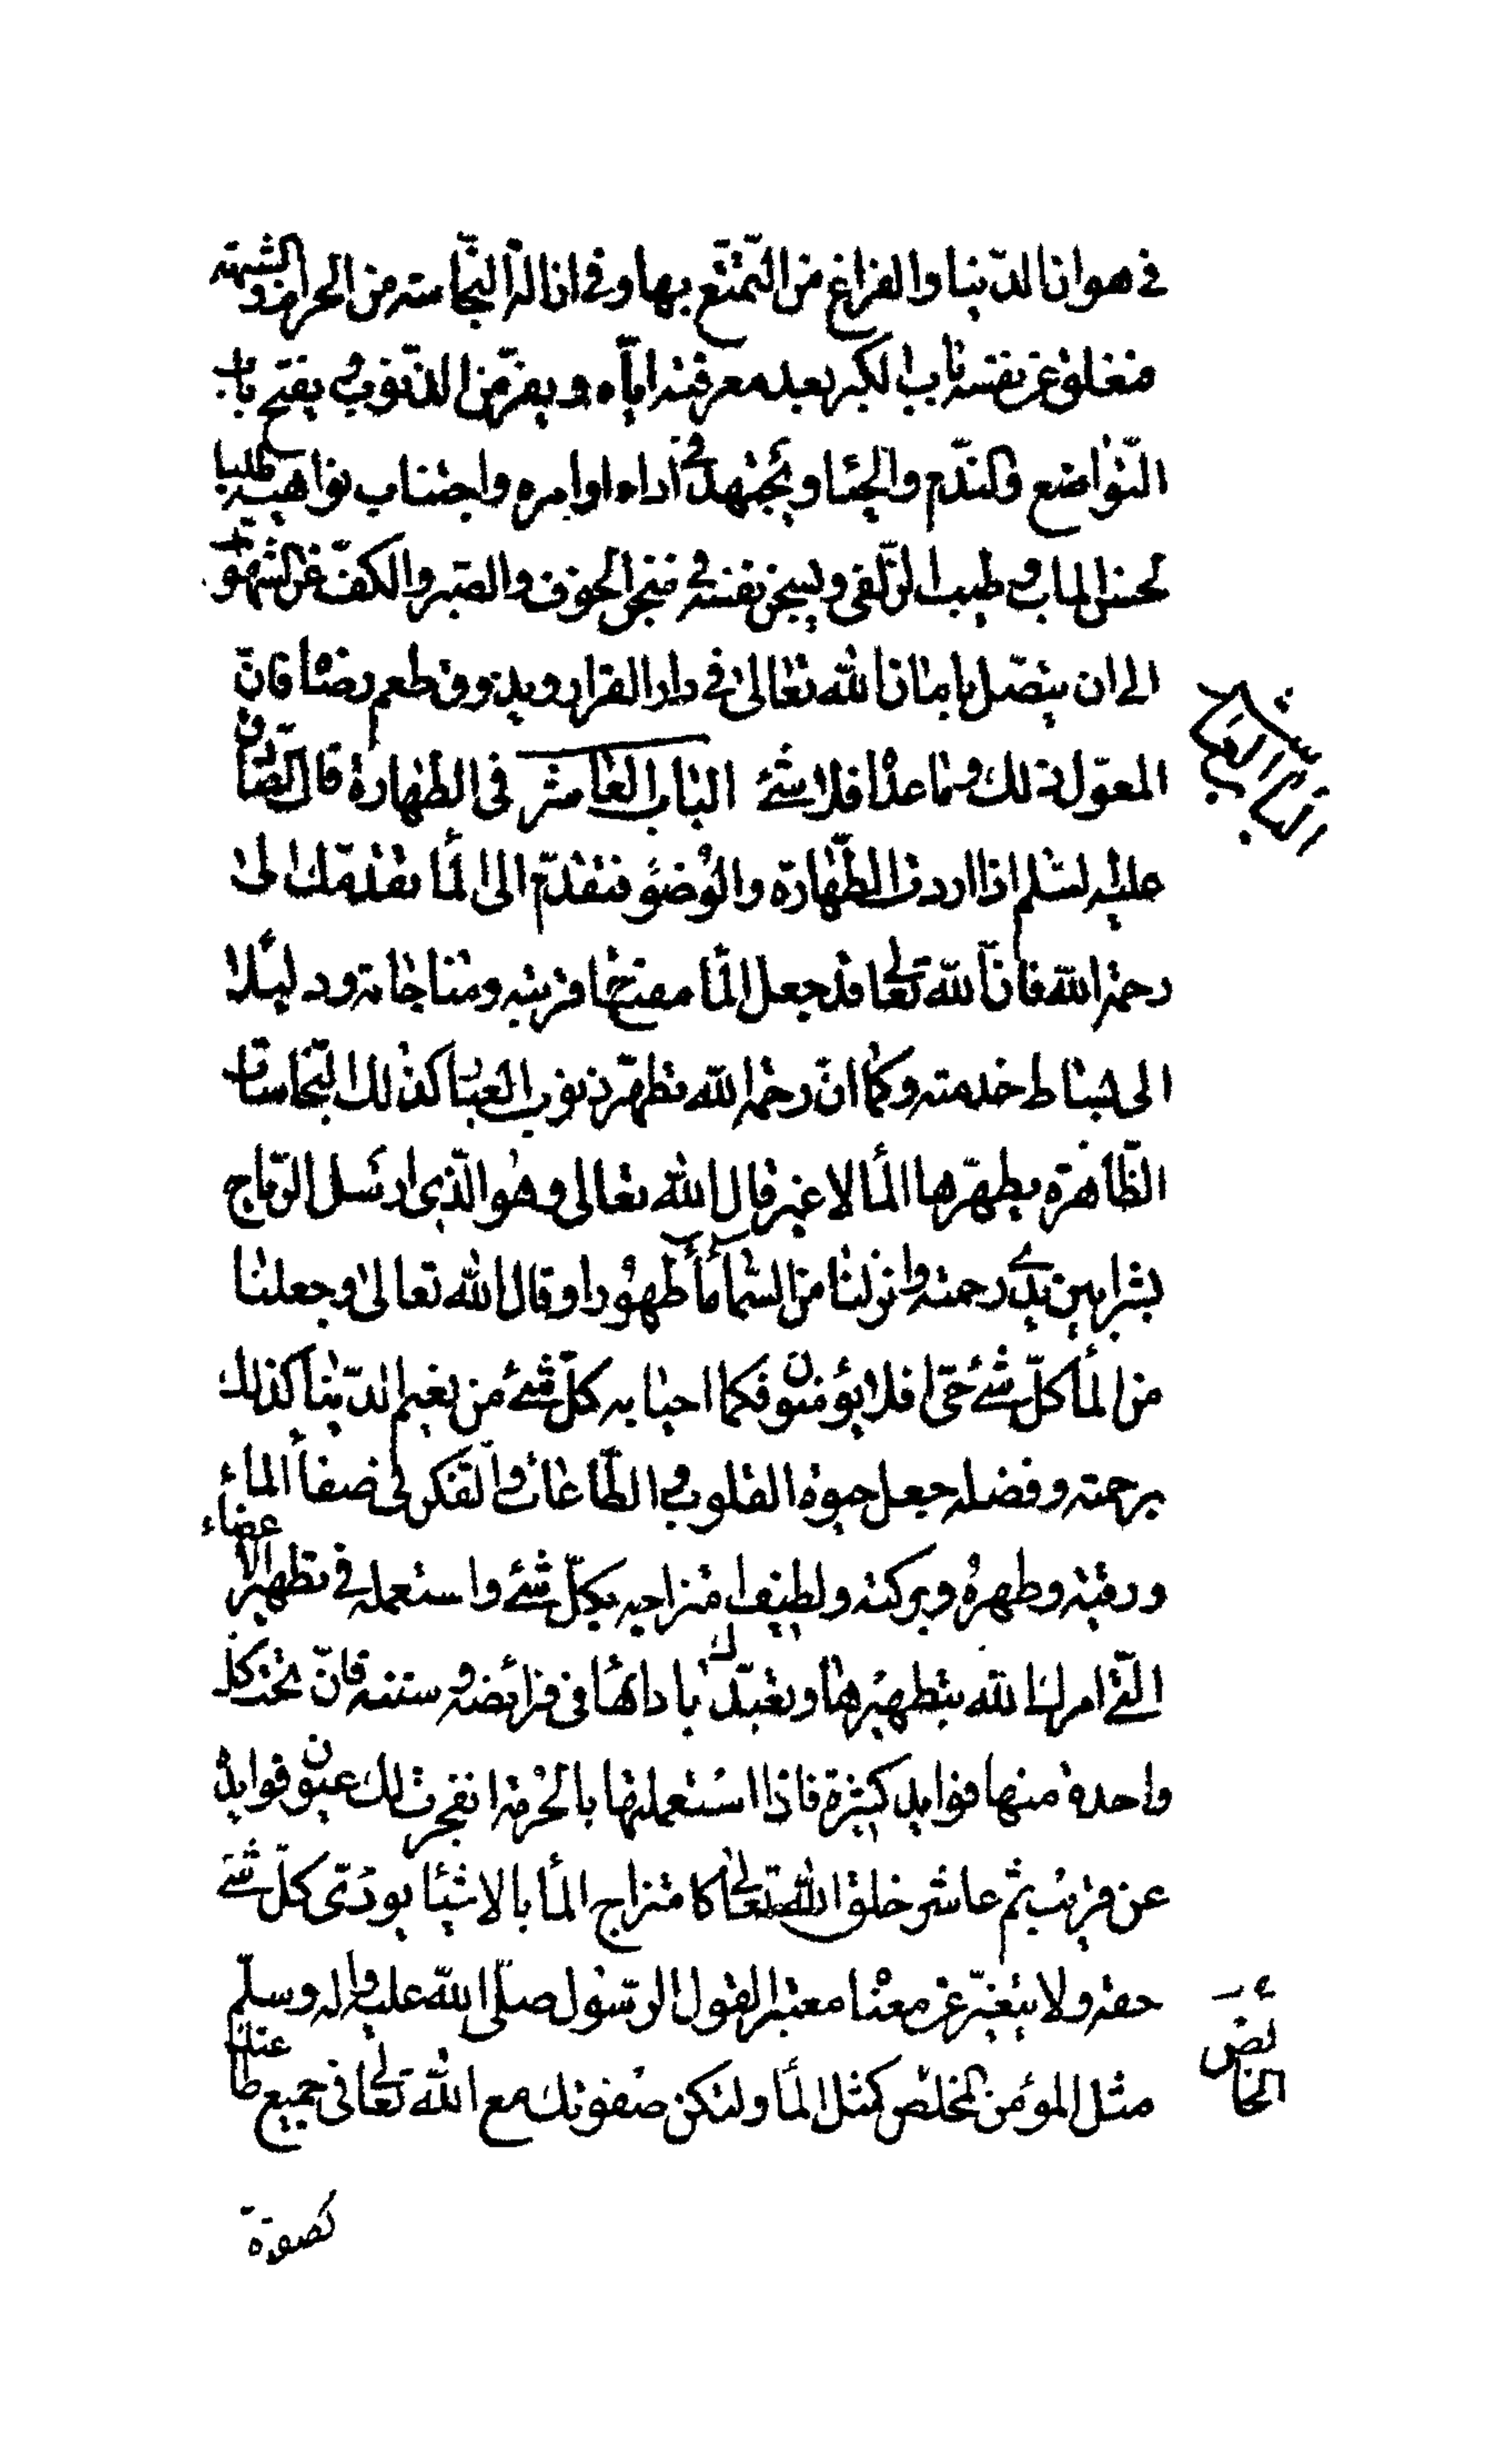 في هوان الدّنيا والفراغ من التّمتّع بها وفي ازالة النّجاسة من الحرام والشبهة
فيغلق عن نفسه باب الكبر بعد معرفته ايّاه ويفرّ من الذّنوب ويفتح باب
التّواضع والنّدم والحيا ويجتهد في اداء اوامره واجتناب نواهيه طلبا
لحسن الماب وطيب الزّلفى ويسجن نفسه في سجن الخوف والصّبر والكفّ عن الشهوات
الى ان يتصّل بامان الله تعالى في دار القرار ويذوق طعم رضاه فانّ
المعوّل ذلك وما عداه فلا شئ الباب العاشر في الطهارة قال الصّادق
الباب العاشر
عليه السلم اذا اردت الطّهارة والوضوء فتقدّم الى الماء تقدّمك الى
رحمة الله فانّ الله تعالى قد جعل الماء مفتاح قربته ومناجاته ودليلا
الى بساط خدمته وكما انّ رحمة الله تطهّر ذنوب العباد كذلك النّجاسات
الظّاهرة يطهّرها الماء لا غير قال الله تعالى وهو الّذى ارسل الرّياح
بشرا بين يدي رحمته وانزلنا من السّماء ماء طهورا وقال الله تعالى وجعلنا
من الماء كلّ شئ حىّ افلا يؤمنون فكما احيا به كلّ شئ من نعيم الدّنيا كذلك
برحمته وفضله جعل حيوة القلوب والطّاعات والتّفكر في صفاء الماء
ورقته وطهره وبركته ولطيف امتزاجه بكلّ شئ واستعمله في تطهير الاعضاء
الّتى امر الله بتطهيرها وتعبّدك بادائها في فرائضه وسننه فانّ تحت كلّ
واحدة منها فوايد كثيرة فاذا استعملتها بالحرمة انفجرت لك عيون فوايده
عن قريب ثم عاشر خلق الله تعالى كامتزاج الماء بالاشياء يودّى كلّ شئ
حقه ولا يتغيّر عن معناه معتبرا لقول الرّسول صلّى الله عليه واله وسلّم
مثل المؤمن المخلص كمثل الماء ولتكن صفوتك مع الله تعالى في جميع طاعتك
الخاص
كصفوة